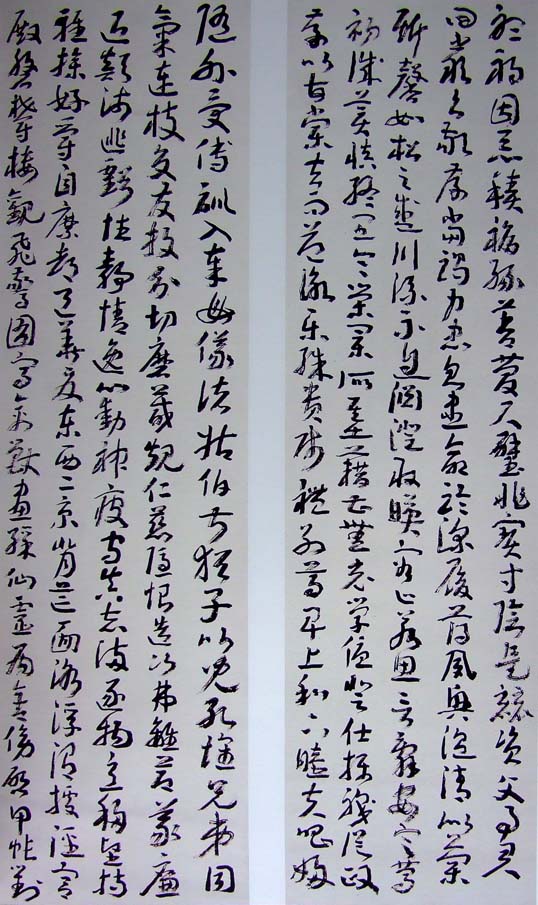 聽禍因惡積福緣善慶尺璧非寶寸陰是競資父事君
曰嚴與敬孝當竭力忠則盡命臨深履薄夙興溫凊似蘭
斯馨如松之盛川流不息淵澄取映容止若思言辭安定篤
初誠美慎終宜令榮業所基籍甚無竟學優登仕攝職從政
存以甘棠去而益詠樂殊貴賤禮別尊卑上和下睦夫唱婦
隨外受傅訓入奉母儀諸姑伯叔猶子比兒孔懷兄弟同
氣連枝交友投分切磨箴規仁慈隱惻造次弗離節義廉
退顛沛匪虧性靜情逸心動神疲守真志滿逐物意移堅持
雅操好爵自縻都邑華夏東西二京背邙面洛浮渭據涇宮
殿盤鬱樓觀飛驚圖寫禽獸畫彩仙靈丙舍傍啟甲帳對